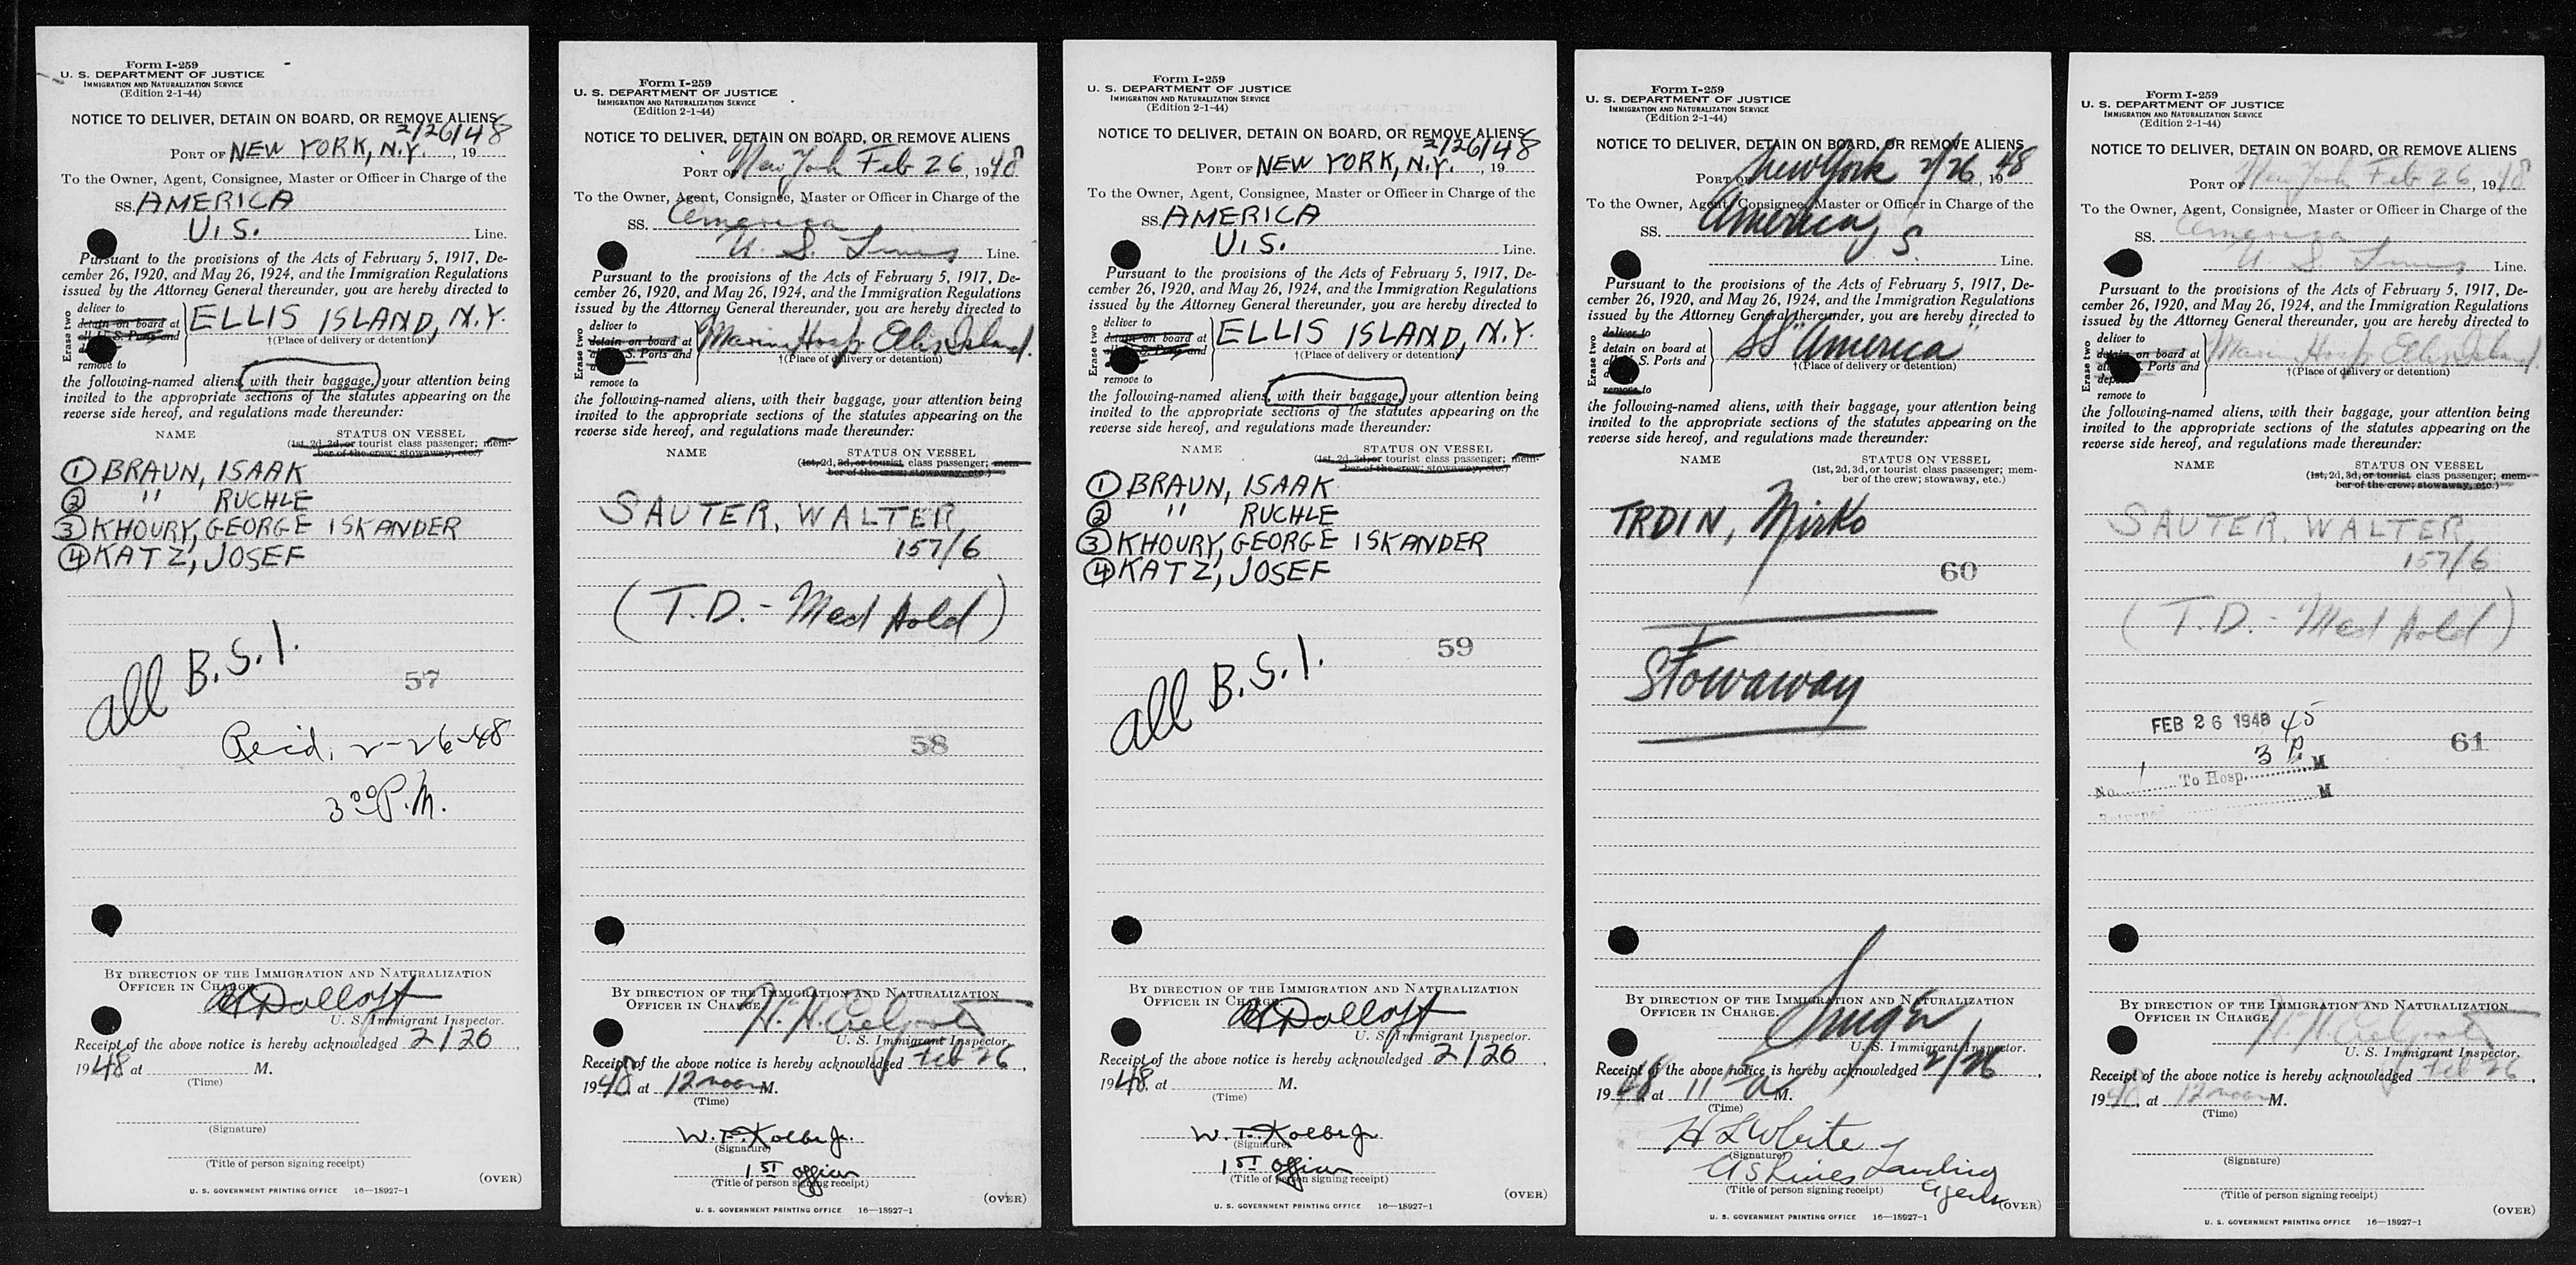 Form I-259
U. S. DEPARTMENT OF JUSTICE
IMMIGRATION AND NATURALIZATION SERVICE
(Edition 2-1-44)
NOTICE TO DELIVER, DETAIN ON BOARD, OR REMOVE ALIENS
2/26/48
PORT OF NEW YORK, N.Y. , 19
To the Owner, Agent, Consignee, Master or Officer in Charge of the
SS. AMERICA
U.S. Line.
Pursuant to the provisions of the Acts of February 5, 1917, De-
cember 26, 1920, and May 26, 1924, and the Immigration Regulations
issued by the Attorney General thereunder, you are hereby directed to
Erase two
deliver to
detain on board at
S. Ports and
remove to
ELLIS ISLAND, N.Y.
†(Place of delivery or detention)
the following-named aliens, with their baggage, your attention being
invited to the appropriate sections of the statutes appearing on the
reverse side hereof, and regulations made thereunder:
NAME STATUS ON VESSEL
(1st, 2d, 3d, or tourist class passenger; mem-
ber of the crew; stowaway, etc.)
① BRAUN, ISAAK
② " RUCHLE
③ KHOURY, GEORGE ISKANDER
④ KATZ, JOSEF
all B.S.I.
57
Rec'd, 2-26-48
3 00 P.M.
BY DIRECTION OF THE IMMIGRATION AND NATURALIZATION
OFFICER IN CHARGE.
U. S. Immigrant Inspector.
Receipt of the above notice is hereby acknowledged 2/26 ,
1948 at M.
(Time)
(Signature)
(Title of person signing receipt)
(OVER)
U. S. GOVERNMENT PRINTING OFFICE 16—18927-1
Form I-259
U. S. DEPARTMENT OF JUSTICE
IMMIGRATION AND NATURALIZATION SERVICE
(Edition 2-1-44)
NOTICE TO DELIVER, DETAIN ON BOARD, OR REMOVE ALIENS
PORT OF New York Feb 26, 1948
To the Owner, Agent, Consignee, Master or Officer in Charge of the
SS. America
U. S. Lines Line.
Pursuant to the provisions of the Acts of February 5, 1917, De-
cember 26, 1920, and May 26, 1924, and the Immigration Regulations
issued by the Attorney General thereunder, you are hereby directed to
Erase two
deliver to
detain on board at
S. Ports and
remove to
Marine Hosp. Ellis Island.
†(Place of delivery or detention)
the following-named aliens, with their baggage, your attention being
invited to the appropriate sections of the statutes appearing on the
reverse side hereof, and regulations made thereunder:
NAME STATUS ON VESSEL
(1st, 2d, 3d, or tourist class passenger; mem-
ber of the crew; stowaway, etc.)
SAUTER, WALTER
157/6
(T.D. - Med Hold)
58
BY DIRECTION OF THE IMMIGRATION AND NATURALIZATION
OFFICER IN CHARGE.
U. S. Immigrant Inspector.
Receipt of the above notice is hereby acknowledged Feb 26 ,
1948, at 12 noon M.
(Time)
W. F. Kolbe Jr.
(Signature)
1ST officer
(Title of person signing receipt)
(OVER)
U. S. GOVERNMENT PRINTING OFFICE 16—18927-1
Form I-259
U. S. DEPARTMENT OF JUSTICE
IMMIGRATION AND NATURALIZATION SERVICE
(Edition 2-1-44)
NOTICE TO DELIVER, DETAIN ON BOARD, OR REMOVE ALIENS
2/26/48
PORT OF NEW YORK, N.Y. , 19
To the Owner, Agent, Consignee, Master or Officer in Charge of the
SS. AMERICA
U.S. Line.
Pursuant to the provisions of the Acts of February 5, 1917, De-
cember 26, 1920, and May 26, 1924, and the Immigration Regulations
issued by the Attorney General thereunder, you are hereby directed to
Erase two
deliver to
remove to
ELLIS ISLAND, N.Y.
†(Place of delivery or detention)
the following-named aliens, with their baggage, your attention being
invited to the appropriate sections of the statutes appearing on the
reverse side hereof, and regulations made thereunder:
NAME STATUS ON VESSEL
(1st, 2d, 3d, or tourist class passenger; mem-
ber of the crew; stowaway, etc.)
① BRAUN, ISAAK
② " RUCHLE
③ KHOURY, GEORGE ISKANDER
④ KATZ, JOSEF
59
all B.S.I.
BY DIRECTION OF THE IMMIGRATION AND NATURALIZATION
OFFICER IN CHARGE.
U. S. Immigrant Inspector.
Receipt of the above notice is hereby acknowledged 2/26 ,
1948 at M.
(Time)
W. F. Kolbe Jr.
(Signature)
1ST officer
(Title of person signing receipt)
(OVER)
U. S. GOVERNMENT PRINTING OFFICE 16—18927-1
Form I-259
U. S. DEPARTMENT OF JUSTICE
IMMIGRATION AND NATURALIZATION SERVICE
(Edition 2-1-44)
NOTICE TO DELIVER, DETAIN ON BOARD, OR REMOVE ALIENS
PORT OF New York 2/26, 1948
To the Owner, Agent, Consignee, Master or Officer in Charge of the
SS. America
Line.
Pursuant to the provisions of the Acts of February 5, 1917, De-
cember 26, 1920, and May 26, 1924, and the Immigration Regulations
issued by the Attorney General thereunder, you are hereby directed to
Erase two
deliver to
detain on board at
S. Ports and
remove to
SS "America"
†(Place of delivery or detention)
the following-named aliens, with their baggage, your attention being
invited to the appropriate sections of the statutes appearing on the
reverse side hereof, and regulations made thereunder:
NAME STATUS ON VESSEL
(1st, 2d, 3d, or tourist class passenger; mem-
ber of the crew; stowaway, etc.)
TRDIN, Mirko
60
Stowaway
BY DIRECTION OF THE IMMIGRATION AND NATURALIZATION
OFFICER IN CHARGE.
U. S. Immigrant Inspector.
Receipt of the above notice is hereby acknowledged 2/26 ,
1948 at 11 A M.
(Time)
H L White
(Signature)
US Lines Landing Agent
(Title of person signing receipt)
(OVER)
U. S. GOVERNMENT PRINTING OFFICE 16—18927-1
Form I-259
U. S. DEPARTMENT OF JUSTICE
IMMIGRATION AND NATURALIZATION SERVICE
(Edition 2-1-44)
NOTICE TO DELIVER, DETAIN ON BOARD, OR REMOVE ALIENS
PORT OF New York Feb 26, 1948
To the Owner, Agent, Consignee, Master or Officer in Charge of the
SS. America
U S Lines Line.
Pursuant to the provisions of the Acts of February 5, 1917, De-
cember 26, 1920, and May 26, 1924, and the Immigration Regulations
issued by the Attorney General thereunder, you are hereby directed to
Erase two
deliver to
detain on board at
Ports and
remove to
Marine Hosp. Ellis Island.
†(Place of delivery or detention)
the following-named aliens, with their baggage, your attention being
invited to the appropriate sections of the statutes appearing on the
reverse side hereof, and regulations made thereunder:
NAME STATUS ON VESSEL
(1st, 2d, 3d, or tourist class passenger; mem-
ber of the crew; stowaway, etc.)
SAUTER, WALTER
157/6
(T.D. - Med Hold)
FEB 26 1948
3 45 P. M
61
No. 1 To Hosp.
Returned M
BY DIRECTION OF THE IMMIGRATION AND NATURALIZATION
OFFICER IN CHARGE.
U. S. Immigrant Inspector.
Receipt of the above notice is hereby acknowledged Feb 26 ,
1948, at 12 noon M.
(Time)
(Signature)
(Title of person signing receipt)
(OVER)
U. S. GOVERNMENT PRINTING OFFICE 16—18927-1